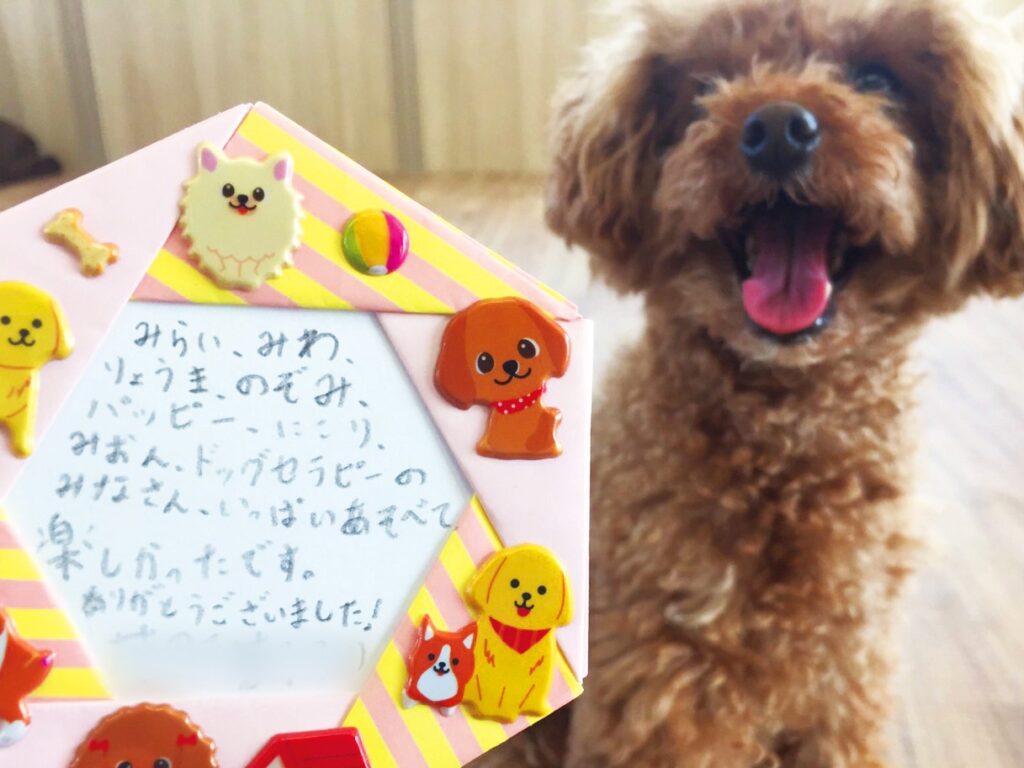 みらい、みわ、
りょうま、のぞみ、
パッピー、にこり、
みおん、ドッグセラピーの
みなさん、いっぱいあそべて
楽しかったです。
ありがとうございました!